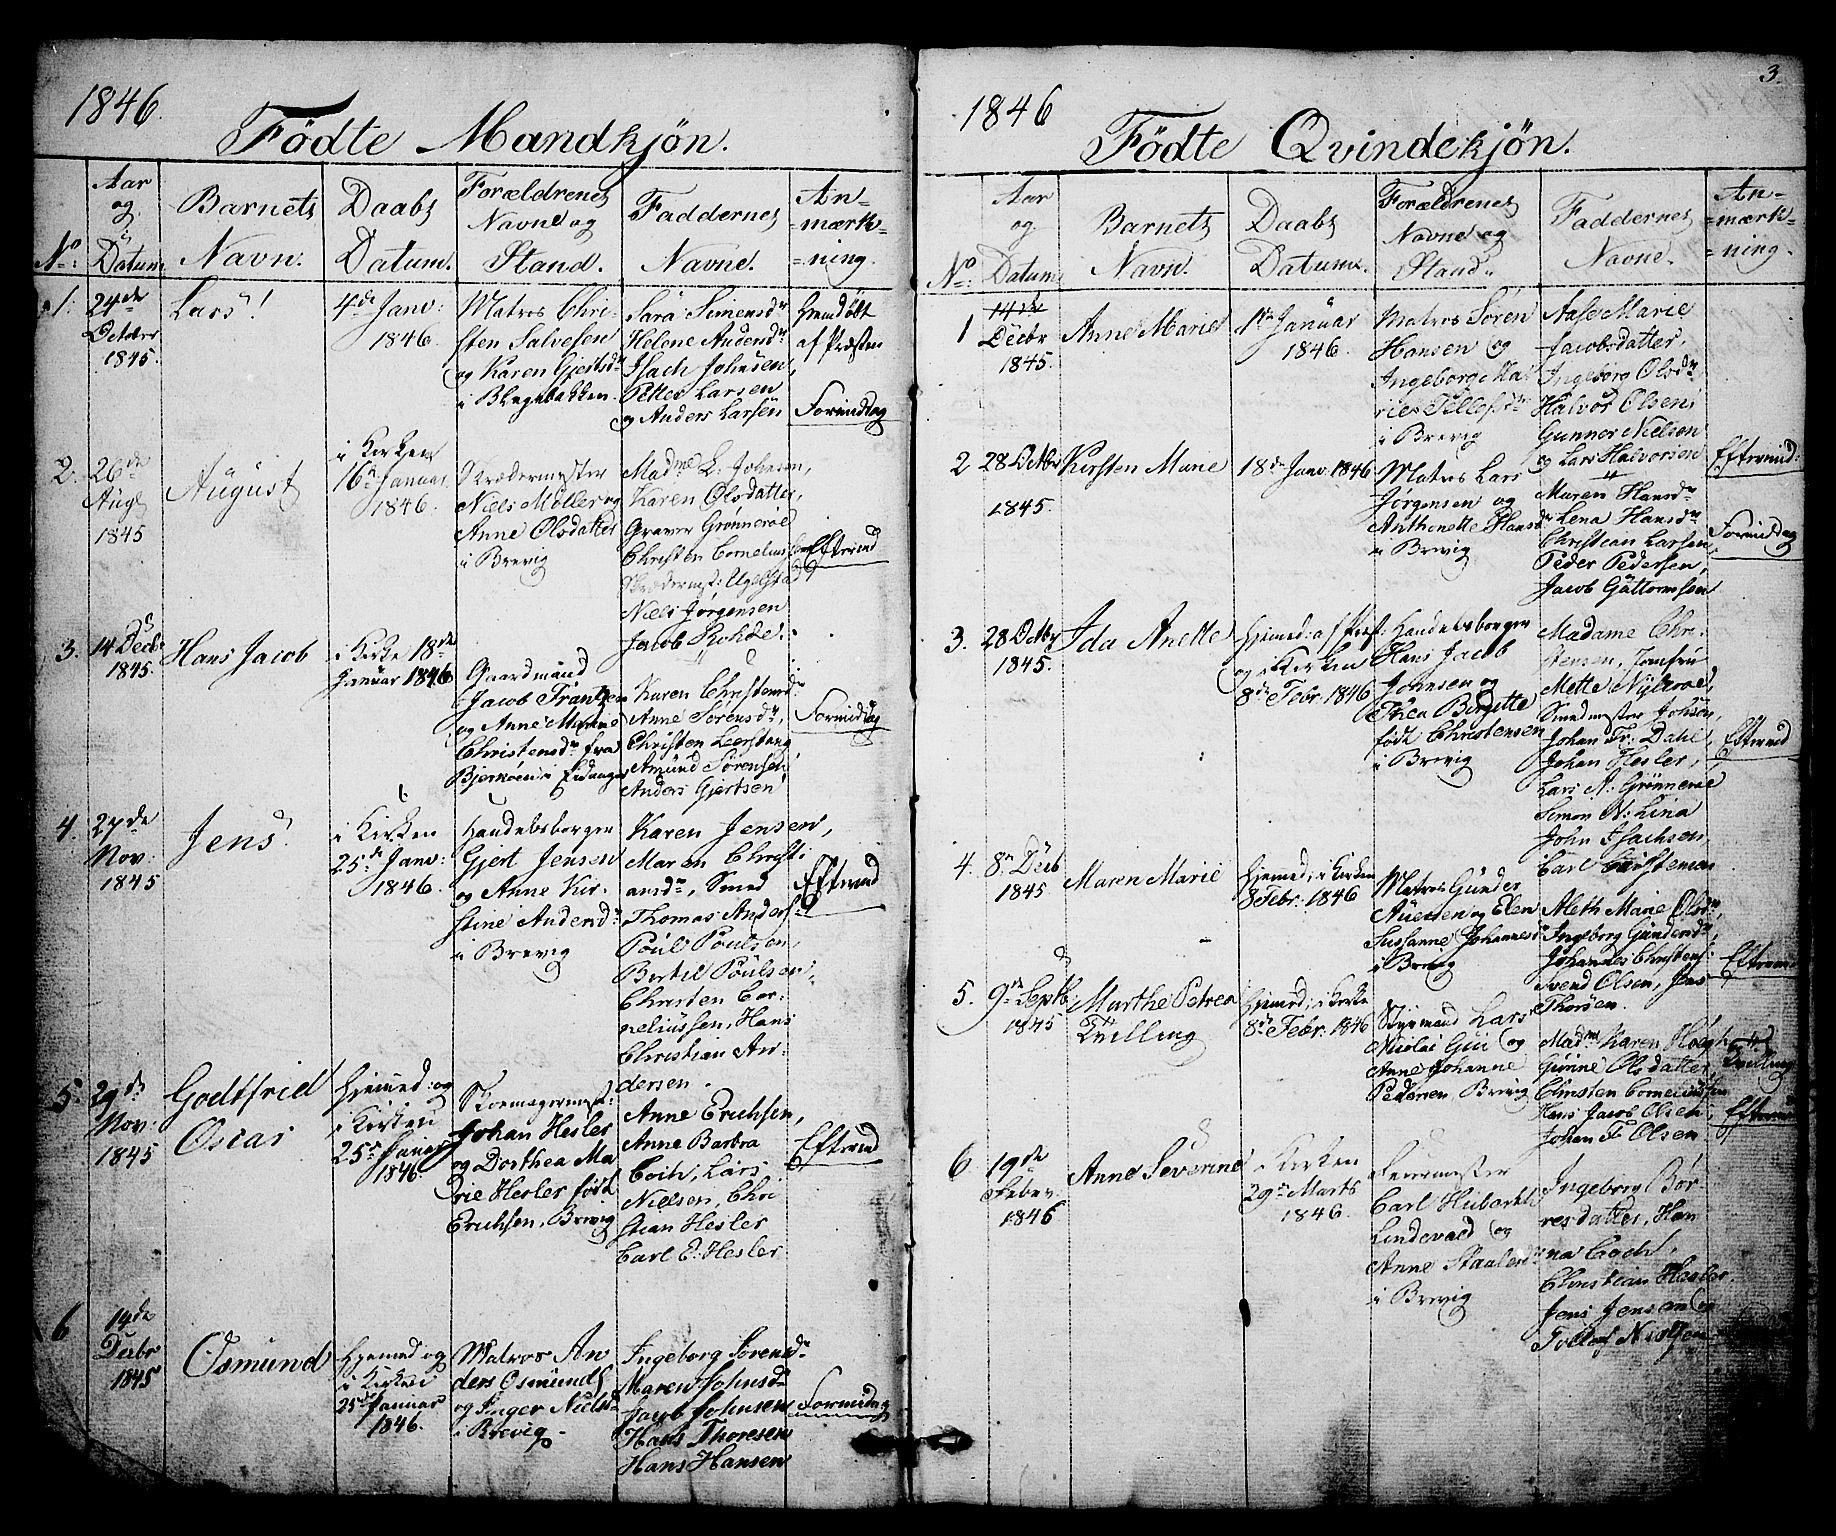 1846.
Födte Mandkjön.
No: Aar og Datum
Barnets Navn.
Daabs Datum.
Forældrenes Navne og Stand.
Faddernes Navne.
An=
=mærk=
=ning.
1.
24de
1845.
Lars!
4de Janv:
1846.
Matros Chri-
sten Salvesen
og Karen Gjertsdr
i Blegebakken.
Sara Simensdr
Helene Audendr
Isach Johnsen
Petter Larsen
og Anders Larsen
Hjemdöbt
af Præsten
Formiddag
2.
26de
Aug
1845
August
i Kirken
16de Januar
1846.
Skrædermester
Niels Möller og
Anne Olsdatter
i Brevig
Madme L. Johnsen,
Karen Olsdatter,
Graver Grönneröe
Christen Corneliussen
Skrædermst: Ugelstad
Niels Jörgensen
Jacob Rohde.
Eftermd
3.
14 Decb:
1845.
Hans Jacob
i Kirke 18de
Januar 1846
Gaardmand
Jacob Frantzen
og Anne Maria
Christensdr fra
Bjerköen i Eidanger
Karen Christensdr
Anne Sörensdr,
Christen Leerstang
Amund Sörensen
Anders Gjertsen
Formiddag
4.
27de
Nov:
1845
Jens.
i Kirken
25de Janv:
1846.
Handelsborger
Gjert Jensen
og Anne Kir-
stine Audendr
i Brevig
Karen Jensen,
Maren Christi
ansdr, Smed
Thomas Anders:
Poul Poulsen,
Bertil Poulsen
Christen Cor-
neliussen, Hans
Christian An-
dersen.
Eftermd
5.
29de
Nov:
1845
Godtfrid
Oscar
Hjemmed: og
i Kirken
25de Januar
1846.
Skomagermest:
Johan Hesler
og Dorthea Ma
rie Hesler föd
Erichsen, Brevig
Anne Erichsen,
Anne Barbra
Coch, Lars
Nielsen, Chri
stian Hesler
Carl E. Hesler
Eftermd
6
14de
Decbr
1845
Osmund
Hjemmed og
i Kirken
25de Januar
1846.
Matros An
ders Osmunds
og Inger Nielsdr
i Brevig.
Ingeborg Sörensdr
Maren Johnsdr
Jacob Johnsen
Hans Thoresen
Hans Hansen
Formiddag
3.
1846
Födte Qvindekjön.
No: Aar og Datum
Barnets Navn.
Daabs Datum.
Forældrenes Navne og Stand.
Faddernes Navne.
An=
=mærk=
=ning.
1
14de
Decbr
1845.
Anne Marie
1ste Januar
1846.
Matros Sören
Hansen og
Ingeborg Ma
rie Tellefsdr
i Brevig
Aase Marie
Jacobsdatter,
Ingeborg Olsdr
Halvor Olsen,
Gunner Nielsen
og Lars Halvorsen
Eftermid:
2
28 Octbr
1845.
Kirsten Marie
18de Janv: 1846
Matros Lars
Jörgensen og
Anthonette Hansdr
i Brevig
Maren Hansdr
Lena Hansdr
Christian Larsen,
Peder Pedersen,
Jacob Guttormsen
Formiddag
3.
28 Octbr
1845.
Ida Anette
Hjemmed: af Præst:
og i Kirken
8de Febr: 1846
Handelsborger
Hans Jacob
Johnsen og
Thea Birgitte
födt Christensen
i Brevig
Madame Chri-
stensen, Jomfru
Mette Nyeroe,
Smedmester Johsen,
Johan Fr: Dahl
Johan Hesler,
Lars A. Grönneröe
Simon N: Lina
John Isachsen
Carl Christensen
Eftermd
4.
8de Decb
1845
Maren Marie
Hjemmed, i Kirken
8 Febr: 1846
Matros Gunder
Auensen og Elen
Susanne Johannesdr
i Brevig
Aleth Marie Olsdr,
Ingeborg Gundersdr,
Johannes Christens:
Svend Olsen, Jens
Thorsen.
Efterm
5.
9de Septb:
1845
Marthe Petrea
Tvilling
Hjemmed, i Kirke
8de Febr: 1846
Styrmand Lars
Nicolai Gui og
Anne Johanne
Pedersen Brevig
Madme Karen Höegh
Gunne Olsdatter,
Christen Corneliussen
Hans Jacob Olsen,
Johan F. Olsen
Tvilling
Efterm
6
19de
Febr.
1846
Anne Severine
i Kirken
29de Marts
1846.
Carl Hubarth
Lindevald og
Anne Staalesdr
i Brevig
Ingeborg Bör-
resdatter, Han
na Coch,
Christian Hesler
Jens Jensen og
Tollef Nielsen